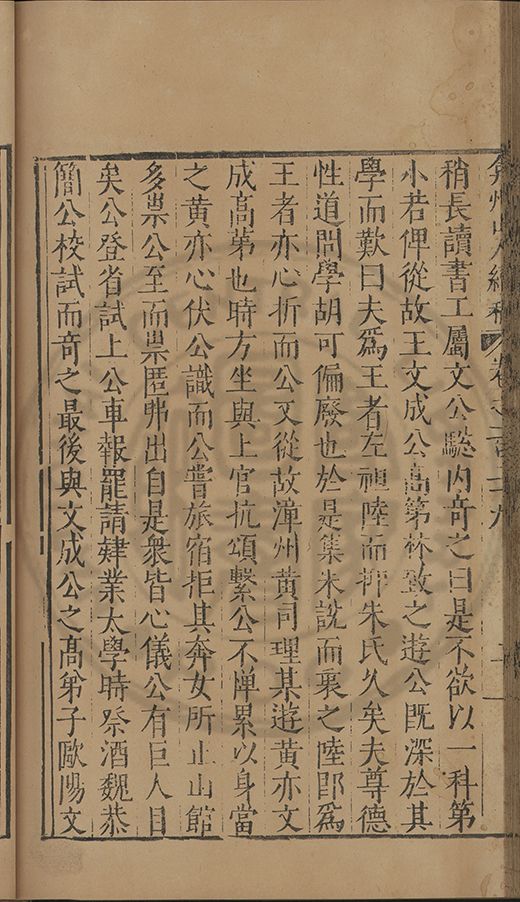 弇州山人續稿 卷之一百二十九 十一
稍長讀書工屬文公懸內奇之曰是不欲以一科第
小若俾從故王文成公高第林致之遊公既深於其
學而歎曰夫為王者左袒陸而抑朱氏久矣夫尊德
性道問學胡可偏廢也於是集朱說而裹之陸郎為
王者亦心折而公又從故漳州黃司理某遊黃亦文
成高第也時方坐與上官抗頌繫公不憚累以身當
之黃亦心伏公識而公嘗旅宿拒其奔女所止山館
多祟公至而祟匿弗出自是衆皆心儀公有巨人目
矣公登省試上公車報罷請肄業太學時祭酒魏恭
簡公校試而奇之最後與文成公之高第子歐陽文